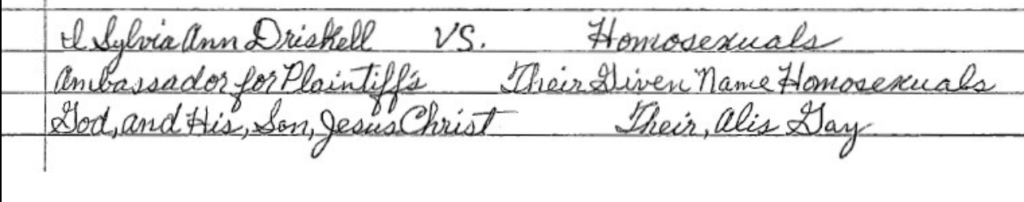 I Sylvia Ann Driskell VS. Homosexuals
Ambassador for Plaintiffs Their Given Name Homosexuals
God, and His, Son, Jesus Christ Their, Alis Gay